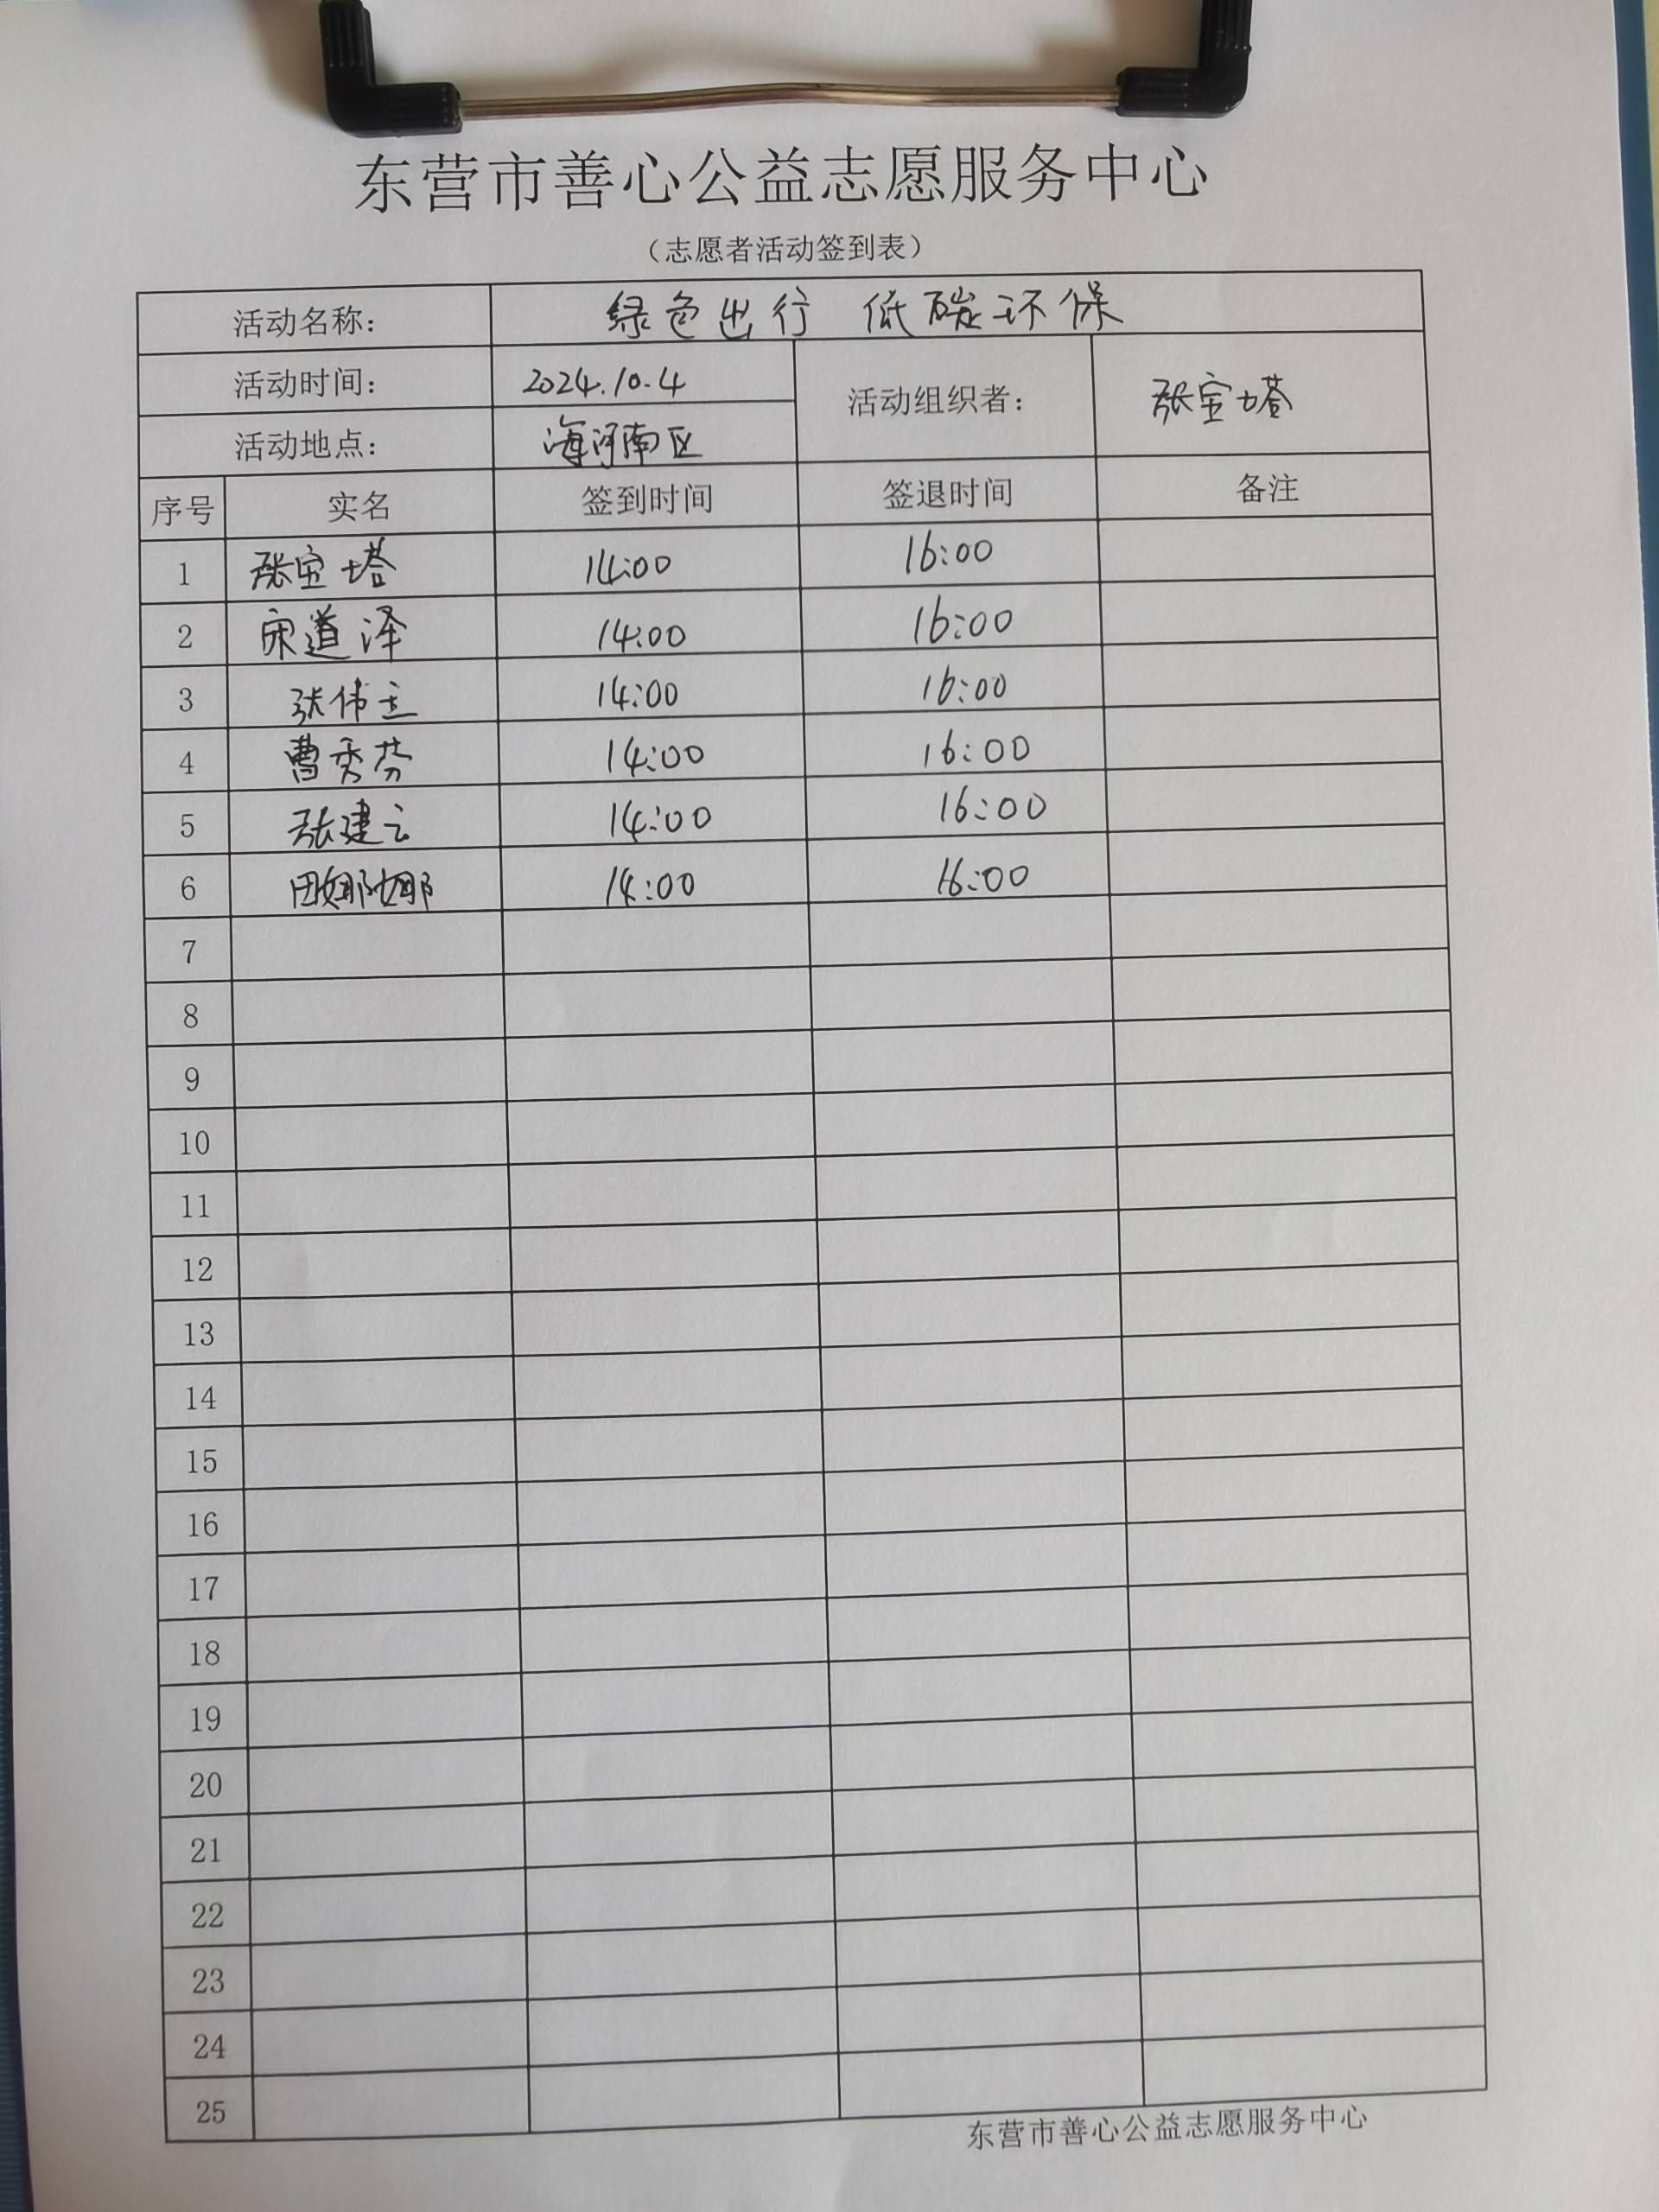 东营市善心公益志愿服务中心
（志愿者活动签到表）
活动名称： 绿色出行 低碳环保
活动时间： 2024.10.4 活动组织者： 张宝塔
活动地点： 海河南区
序号 实名 签到时间 签退时间 备注
1 张宝塔 14:00 16:00
2 宋道泽 14:00 16:00
3 张伟 14:00 16:00
4 曹秀芬 14:00 16:00
5 张建云 14:00 16:00
6 田娜娜 14:00 16:00
7
8
9
10
11
12
13
14
15
16
17
18
19
20
21
22
23
24
25
东营市善心公益志愿服务中心